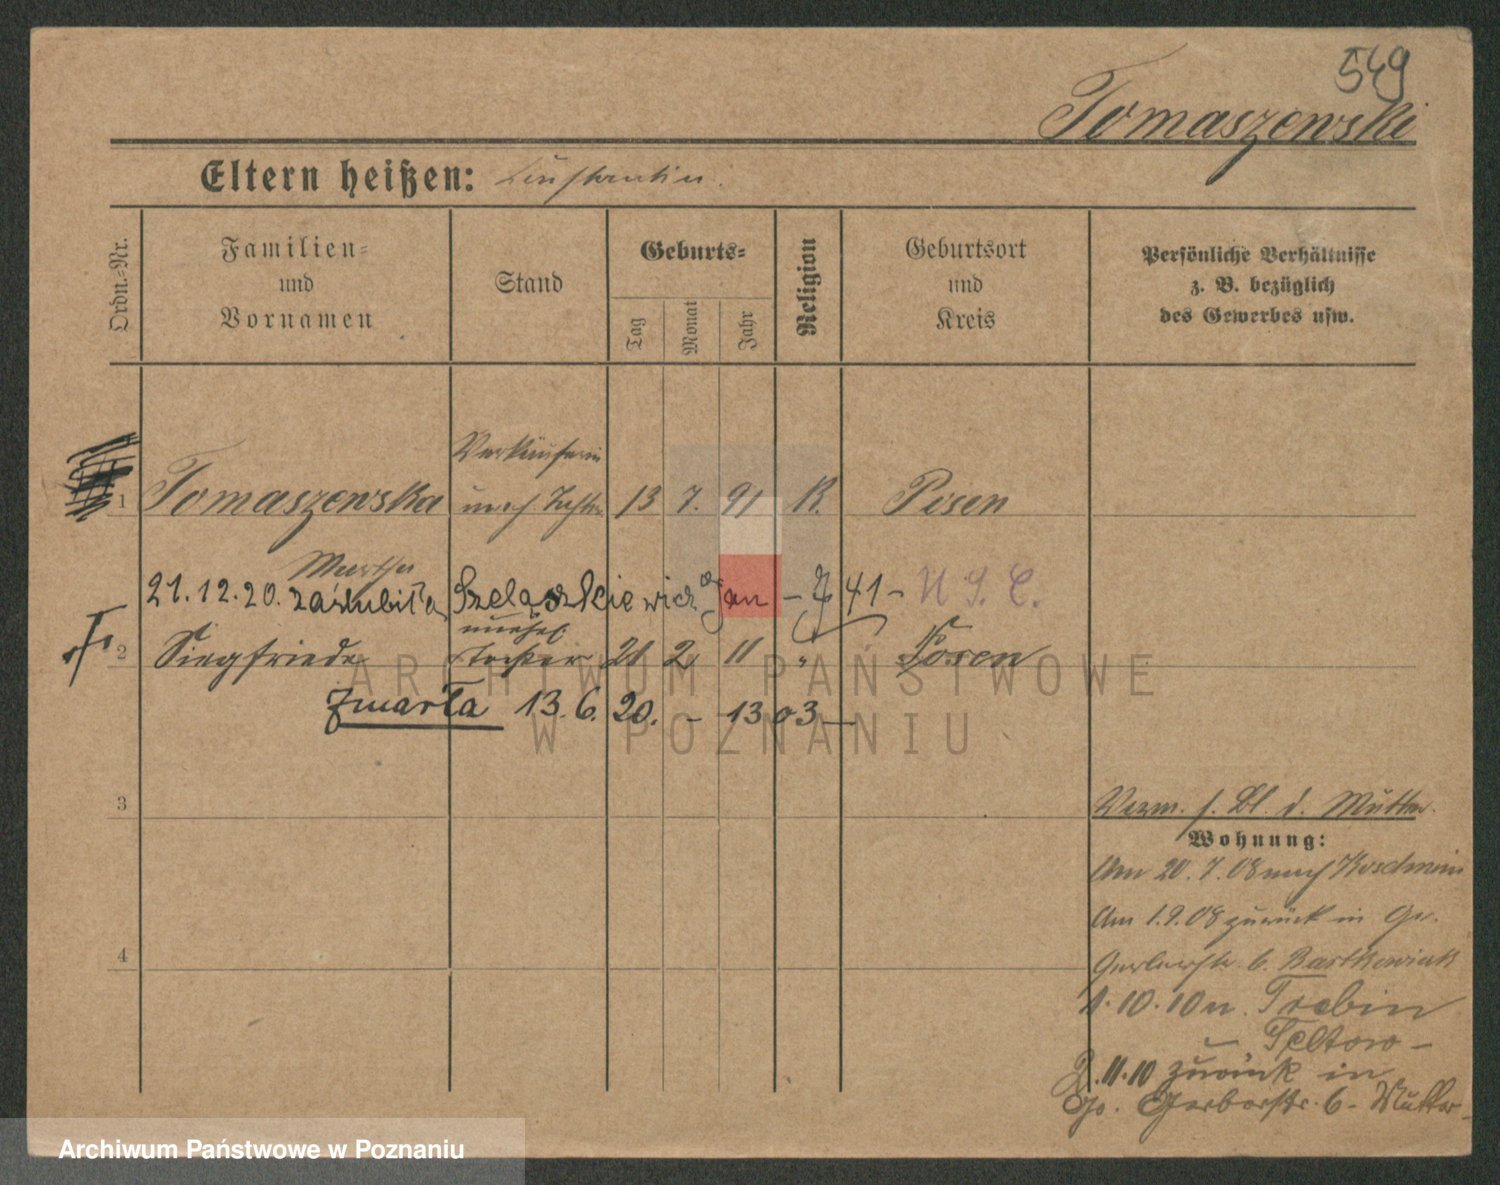 549
Tomaszewski
Eltern heißen: Konstantin.
Ordn.-Nr.
Familien- und Vornamen
Stand
Geburts-
Tag
Monat
Jahr
Religion
Geburtsort und Kreis
Persönliche Verhältnisse z. B. bezüglich des Gewerbes usw.
Verkäuferin
1 Tomaszewska 13 7. 91 K. Posen
Martha
21.12.20. zaślubiła Jan 41 – U. S. C.
unehel
2 Siegfriede Tochter 21 2 11 " Posen
zmarła 13.6.20. – 1303 –
3
Verm. s. Bl. d. Mutter.
Wohnung:
Am 20.7.08 nach Koschmin
Am 1.9.08 zurück in Go.
4
Gerberstr. 6. Bartkowiak
1.10.10 n. Trebin
Teltow –
zurück in
Go. Gerberstr. 6 – Mutter
ARCHIWUM PAŃSTWOWE
W POZNANIU
Archiwum Państwowe w Poznaniu